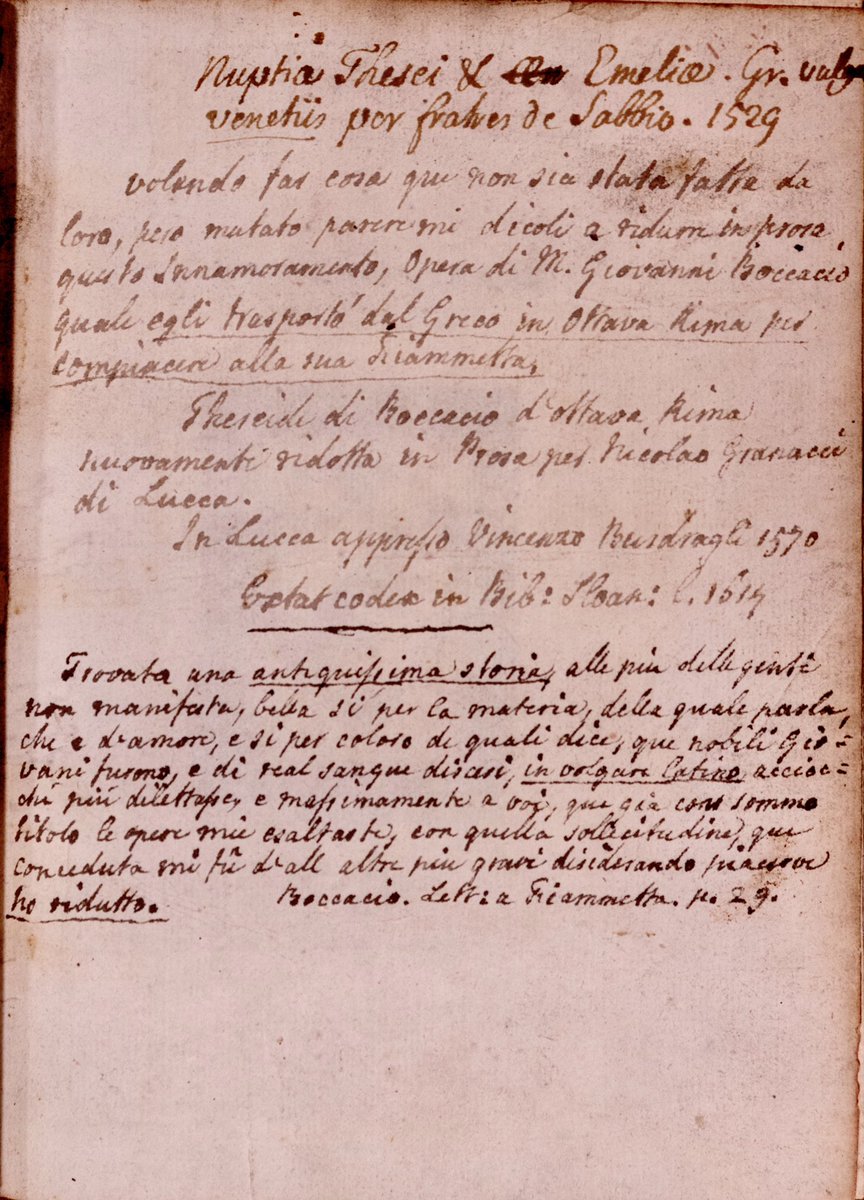 Nuptiæ Thesei & Emeliæ. Gr. vulg
venetiis per fratres de Sabbio. 1529
volendo far cosa que non sia stata fatta da
loro, pero mutato parere mi dicoli a ridurre in prosa
questo Innamoramento, Opera di M. Giovanni Boccacio
quale egli trasportò dal Greco in Ottava Rima per
compiacere alla sua Fiammetta,
Theseide di Boccacio d'ottava Rima
nuovamente ridotta in Prosa per Nicolao Granacci
di Lucca.
In Lucca appresso Vincenzo Busdragli 1570
Extat codex in Bib: Sloan: C. 1614
Trovata una antiquissima storia, alle più delle genti
non manifesta, bella si per la materia, della quale parla,
che è d'amore, e si per coloro de quali dice, que nobili Gio=
vani furono, e di real sangue discesi, in volgare latino accioc=
chè più dilettasse, e massimamente a voi, que già com sommo
titolo le opere mie esaltaste, con quella sollecitudine, que
conceduta mi fù d'all altre piu gravi disiderando piacervi
ho ridutto. Boccacio. Lett: a Fiammetta. p. 29.